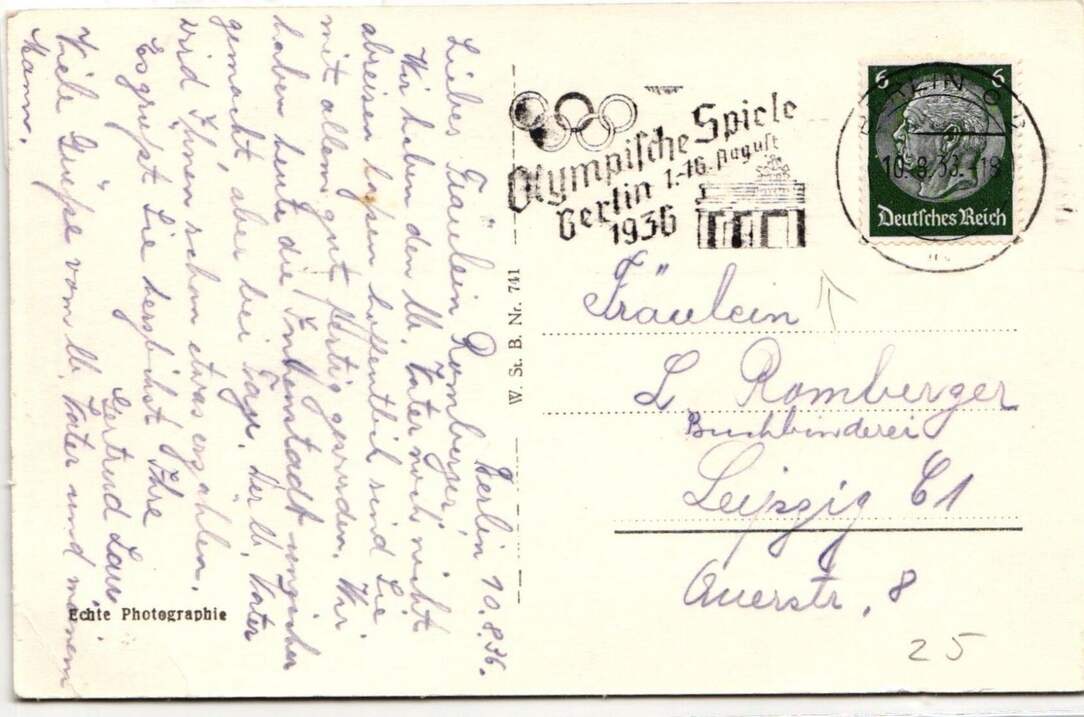 Berlin, 10.8.36.
Liebes Fräulein Romberger,
Wir haben den lb. Vater noch nicht
abreisen lassen hoffentlich sind Sie
mit allem gut fertig geworden. Wir
haben heute die Innenstadt unsicher
gemacht, aber bei Tage. Der lb. Vater
wird Ihnen schon etwas erzählen.
Es grüßt Sie herzlichst Ihre
Gertrud
Viele Grüße vom lb. Vater und meinem
Mann.
Echte Photographie
W. St. B. Nr. 741
Olympische Spiele
Berlin 1.-16. August
1936
BERLIN
6 6
Deutsches Reich
Fräulein
L. Romberger
Buchbinderei
Leipzig C1
Auerstr. 8
25